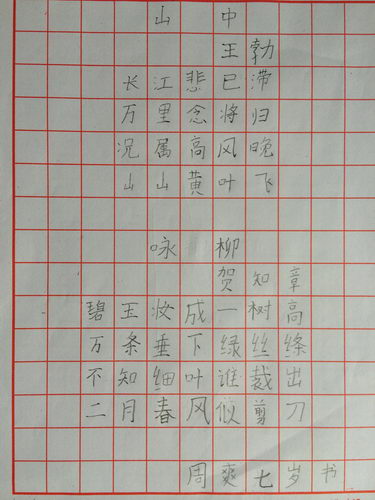 山中
王勃
长江悲已滞
万里念将归
况属高风晚
山山黄叶飞
咏柳
贺知章
碧玉妆成一树高
万条垂下绿丝绦
不知细叶谁裁出
二月春风似剪刀
周爽七岁书